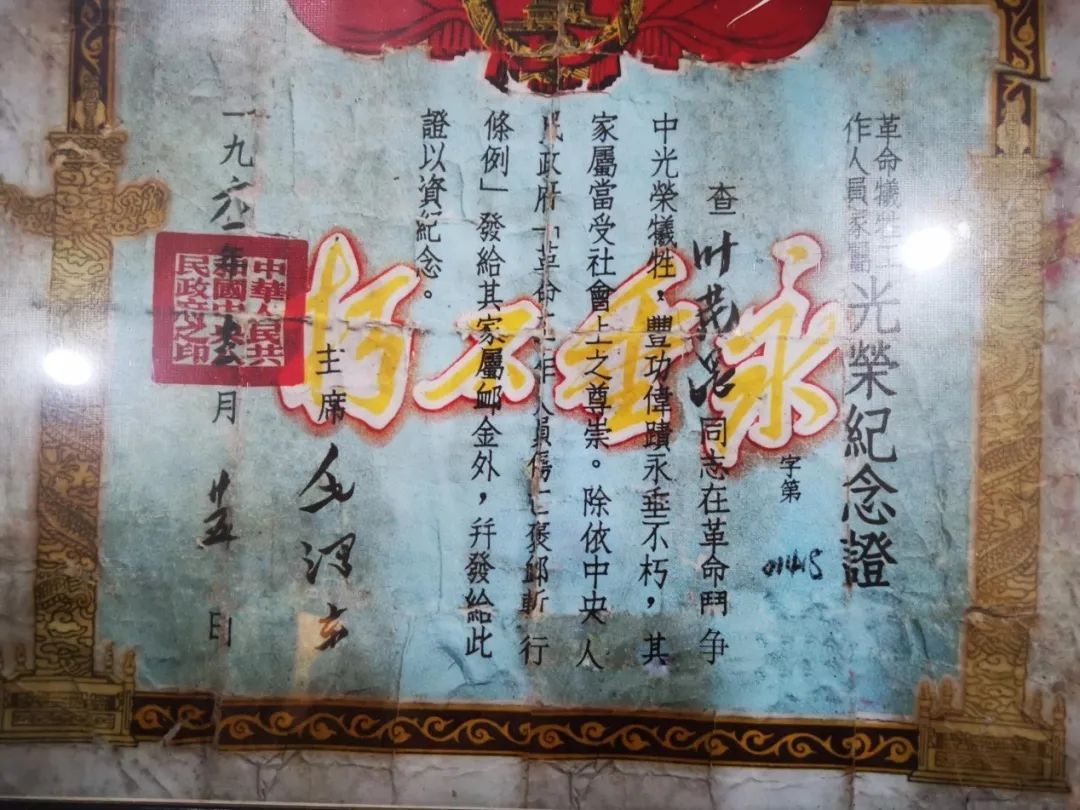 革命犧牲工
作人員家屬
光榮紀念證
字第
查叶同志在革命鬥争
中光榮犧牲,豐功偉蹟永垂不朽,其
家屬當受社會上之尊崇。除依中央人
民政府「革命工作人員傷亡褒卹暫行
條例」發給其家屬卹金外,幷發給此
證以資紀念。
主席毛澤东
一九六一年月廿五日
永垂不朽
中華人民共
和國中央人
民政府之印